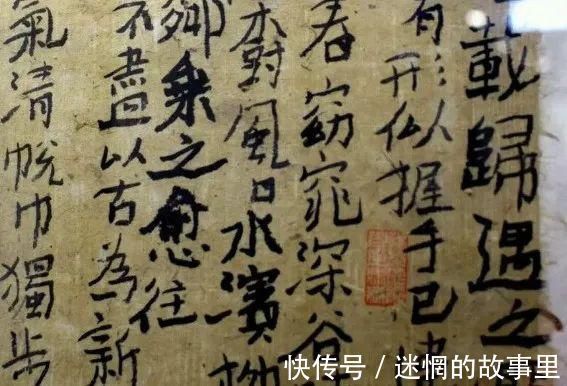 載歸遇之
有形似握手已
春窈窕深谷
樹風日水濱柳
乘之愈往
不盡以古為新
氣清帨巾獨步
快传号 / 迷惘的故事里